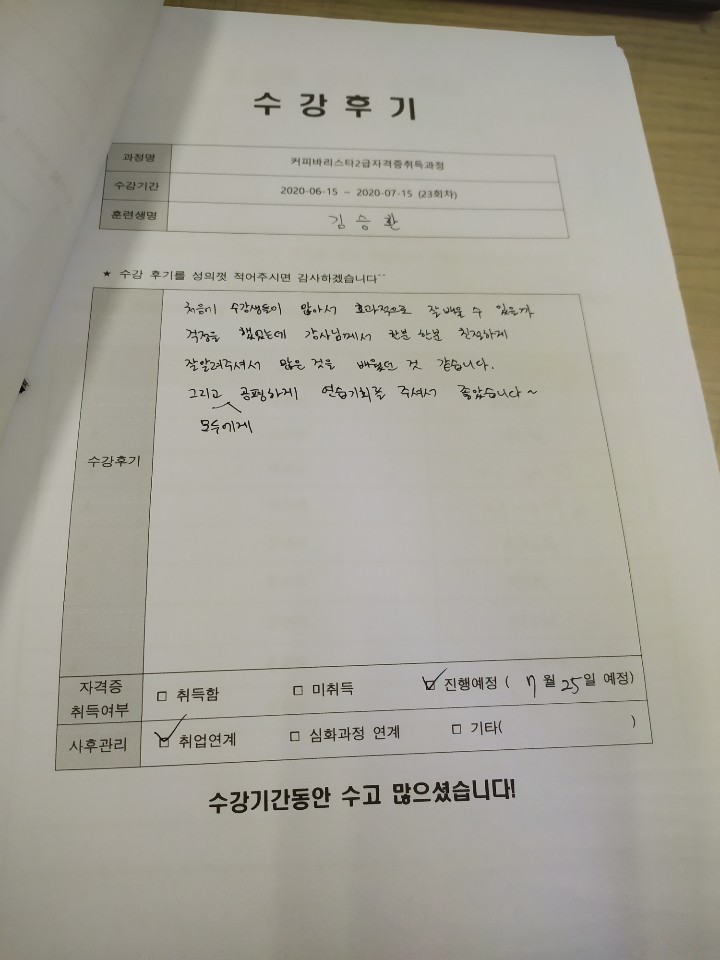 수 강 후 기
과정명 커피바리스타2급자격증취득과정
수강기간 2020-06-15 ~ 2020-07-15 (23회차)
훈련생명 김 승 환
★ 수강 후기를 성의껏 적어주시면 감사하겠습니다^^
수강후기
처음에 수강생들이 많아서 효과적으로 잘 배울 수 있을까
걱정을 했었는데 강사님께서 한분 한분 친절하게
잘알려주셔서 많은 것을 배웠던 것 같습니다.
그리고 공평하게 연습기회를 주셔서 좋았습니다~
모두에게
자격증 취득여부 □ 취득함 □ 미취득 ☑ 진행예정 ( 7 월 25 일 예정)
사후관리 ☑ 취업연계 □ 심화과정 연계 □ 기타( )
수강기간동안 수고 많으셨습니다!